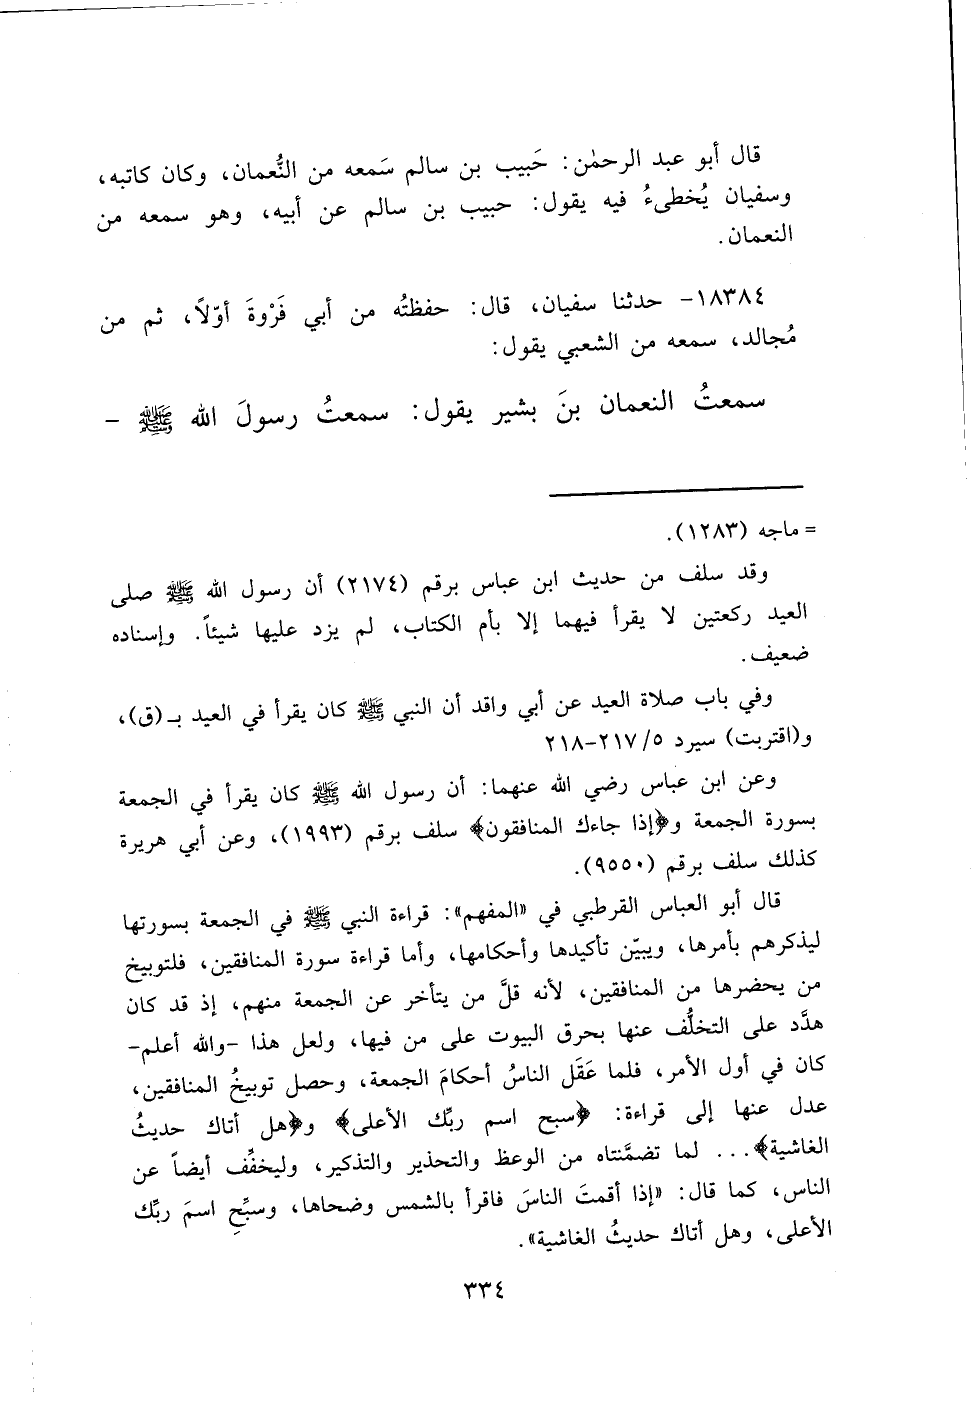 قال أبو عبد الرحمٰن: حَبيب بن سالم سَمعه من النُّعمان، وكان كاتبه،
وسفيان يُخطىءُ فيه يقول: حبيب بن سالم عن أبيه، وهو سمعه من
النعمان.
١٨٣٨٤- حدثنا سفيان، قال: حفظتُه من أبي فَرْوةَ أوّلاً، ثم من
مُجالد، سمعه من الشعبي يقول:
سمعتُ النعمان بنَ بشير يقول: سمعتُ رسولَ الله ﷺ -
= ماجه (١٢٨٣).
وقد سلف من حديث ابن عباس برقم (٢١٧٤) أن رسول الله ﷺ صلى
العيد ركعتين لا يقرأ فيهما إلا بأم الكتاب، لم يزد عليها شيئاً. وإسناده
ضعيف.
وفي باب صلاة العيد عن أبي واقد أن النبي ﷺ كان يقرأ في العيد بـ(ق)،
و(اقتربت) سيرد ٢١٧/٥-٢١٨
وعن ابن عباس رضي الله عنهما: أن رسول الله ﷺ كان يقرأ في الجمعة
بسورة الجمعة و﴿إذا جاءك المنافقون﴾ سلف برقم (١٩٩٣)، وعن أبي هريرة
كذلك سلف برقم (٩٥٥٠).
قال أبو العباس القرطبي في «المفهم»: قراءة النبي ﷺ في الجمعة بسورتها
ليذكرهم بأمرها، ويبيّن تأكيدها وأحكامها، وأما قراءة سورة المنافقين، فلتوبيخ
من يحضرها من المنافقين، لأنه قلَّ من يتأخر عن الجمعة منهم، إذ قد كان
هدَّد على التخلُّف عنها بحرق البيوت على من فيها، ولعل هذا -والله أعلم-
كان في أول الأمر، فلما عَقَل الناسُ أحكامَ الجمعة، وحصل توبيخُ المنافقين،
عدل عنها إلى قراءة: ﴿سبح اسم ربِّك الأعلى﴾ و﴿هل أتاك حديثُ
الغاشية﴾... لما تضمَّنتاه من الوعظ والتحذير والتذكير، وليخفِّف أيضاً عن
الناس، كما قال: «إذا أقمتَ الناسَ فاقرأ بالشمس وضحاها، وسبِّحِ اسمَ ربِّك
الأعلى، وهل أتاك حديثُ الغاشية».
٣٣٤